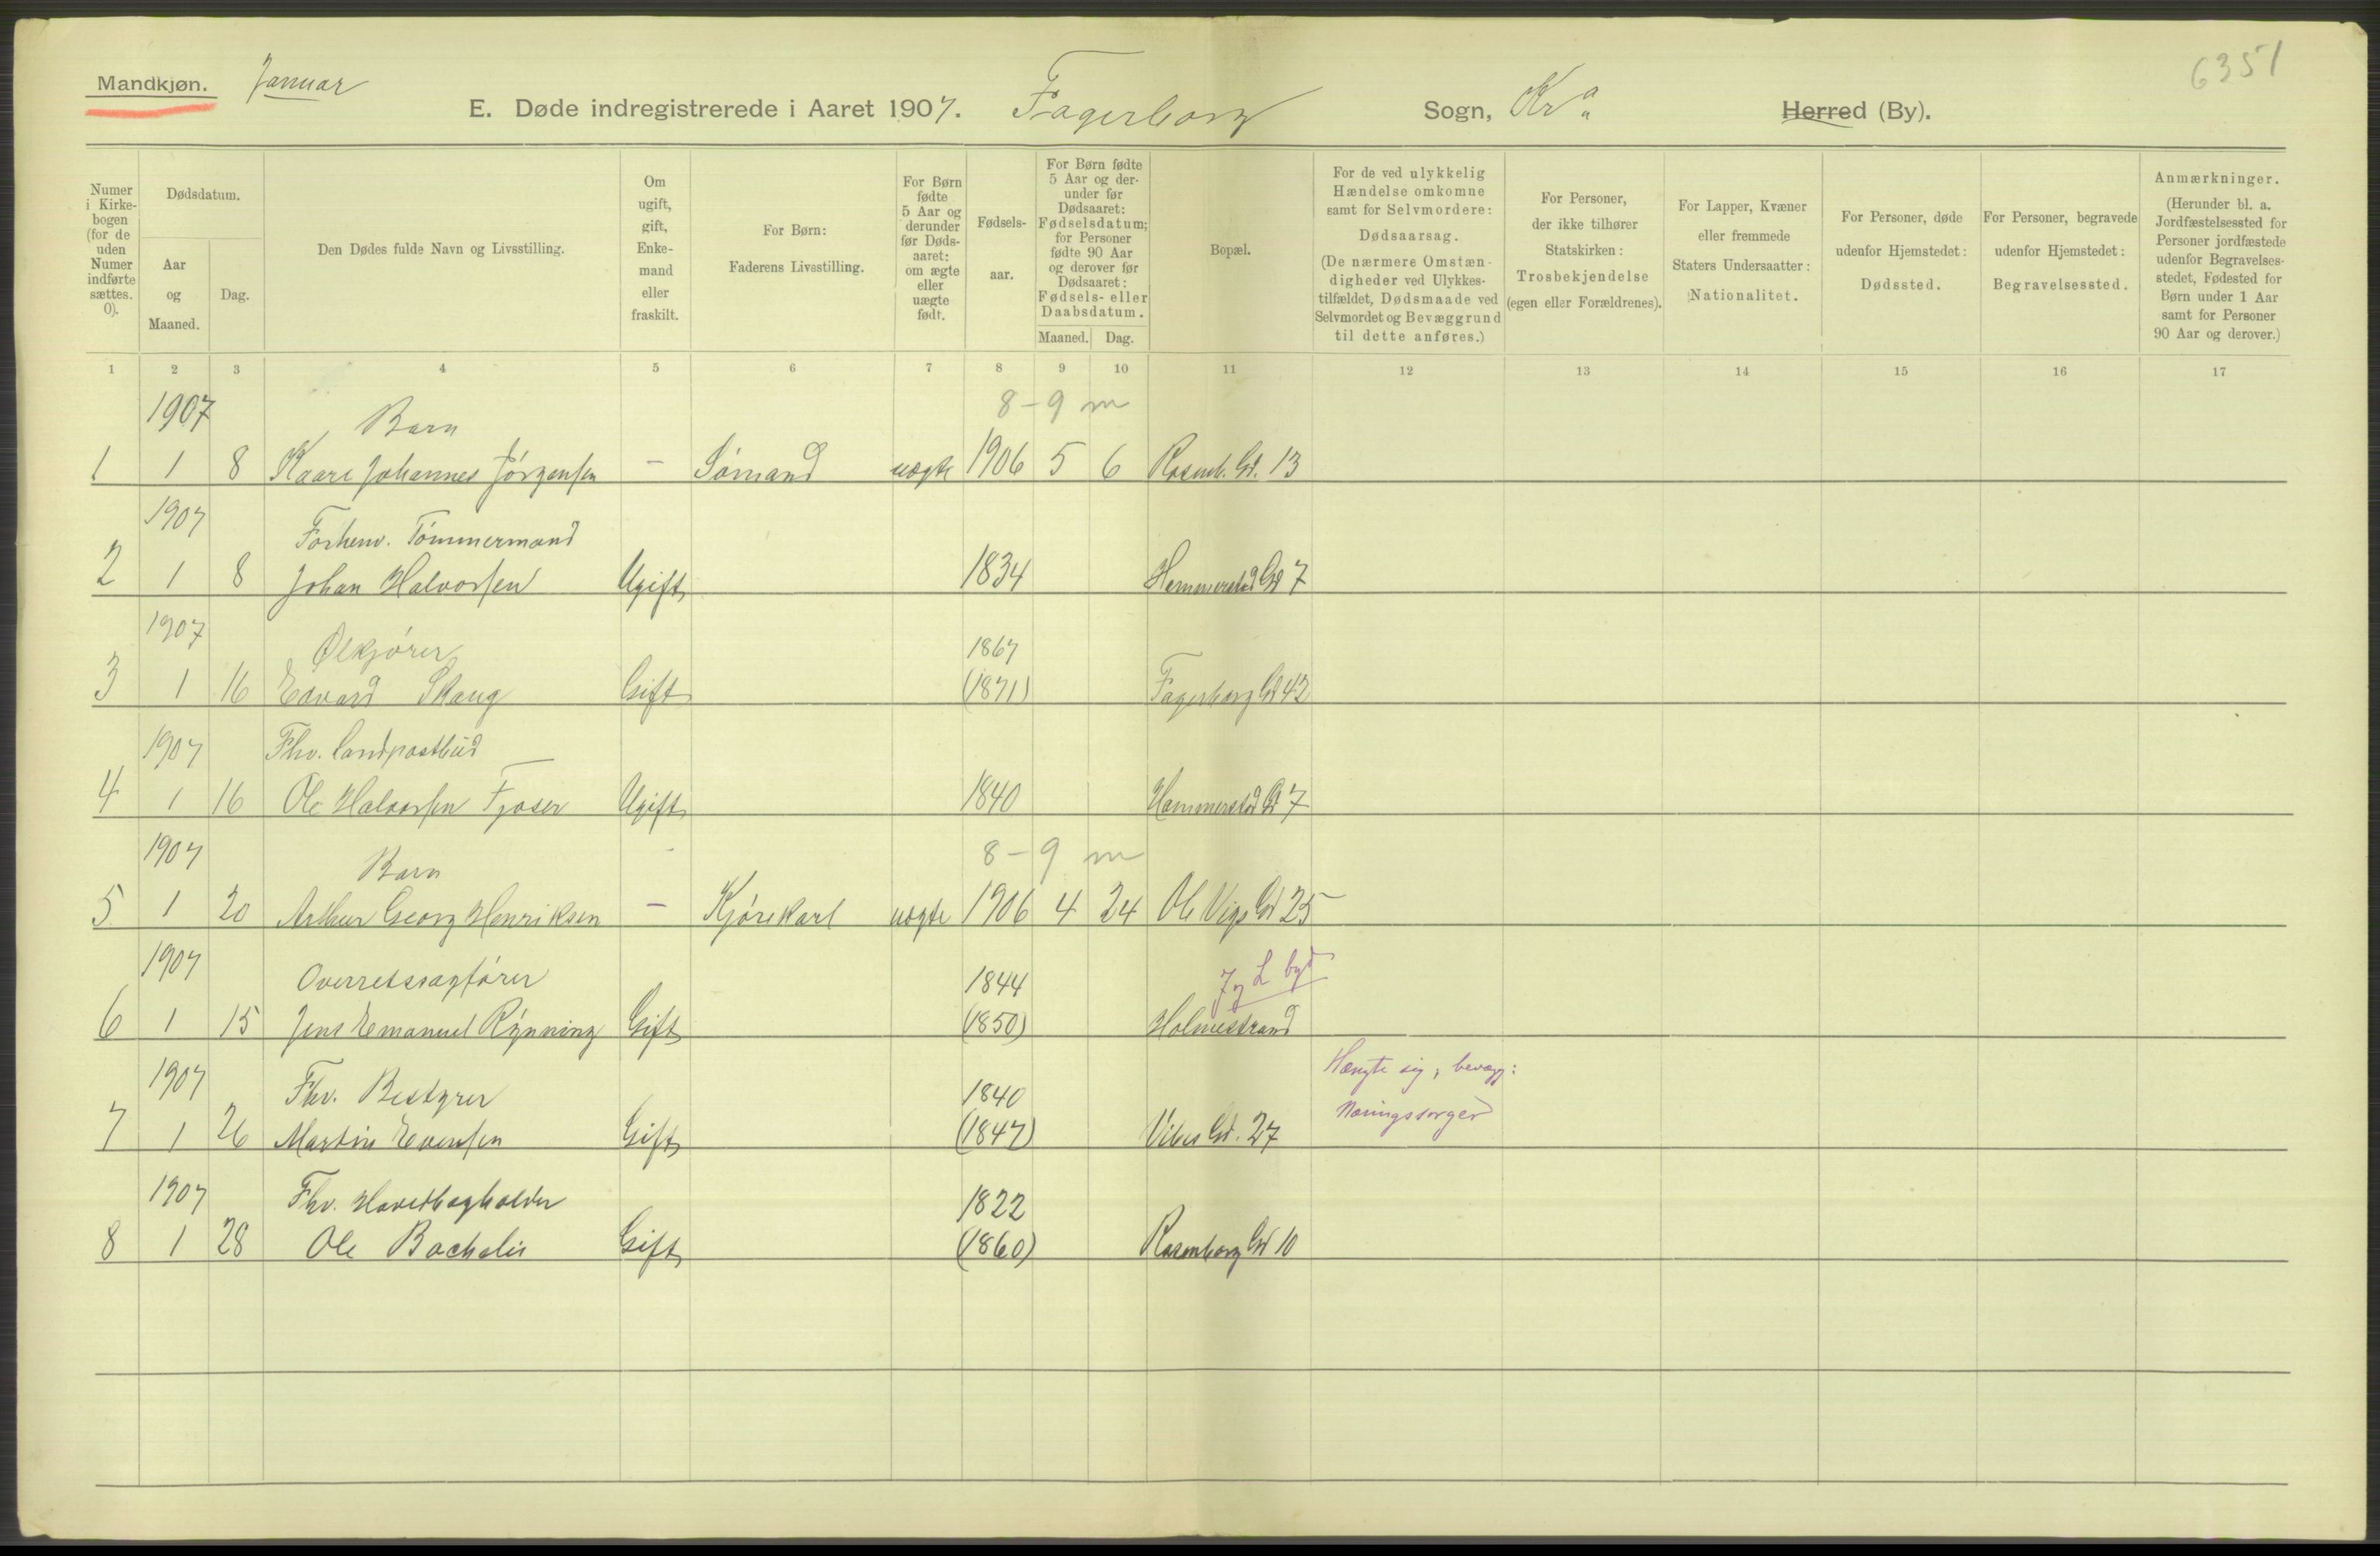 Mandkjøn. Januar
6351
E. Døde indregistrerede i Aaret 1907. Fagerborg Sogn, Kra Herred (By).
Numer i Kirkebogen (for de uden Numer indførte sættes. 0).
Dødsdatum.
Aar og Maaned.
Dag.
Den Dødes fulde Navn og Livsstilling.
Om ugift, gift, Enkemand eller fraskilt.
For Børn: Faderens Livsstilling.
For Børn fødte 5 Aar og derunder før Dødsaaret: om ægte eller uægte født.
Fødselsaar.
For Børn fødte 5 Aar og derunder før Dødsaaret: Fødselsdatum; for Personer fødte 90 Aar og derover før Dødsaaret: Fødsels- eller Daabsdatum.
Maaned. Dag.
Bopæl.
For de ved ulykkelig Hændelse omkomne samt for Selvmordere: Dødsaarsag. (De nærmere Omstændigheder ved Ulykkestilfældet, Dødsmaade ved Selvmordet og Bevæggrund til dette anføres.)
For Personer, der ikke tilhører Statskirken: Trosbekjendelse (egen eller Forældrenes).
For Lapper, Kvæner eller fremmede Staters Undersaatter: Nationalitet.
For Personer, døde udenfor Hjemstedet: Dødssted.
For Personer, begravede udenfor Hjemstedet: Begravelsessted.
Anmærkninger. (Herunder bl. a. Jordfæstelsessted for Personer jordfæstede udenfor Begravelsesstedet, Fødested for Børn under 1 Aar samt for Personer 90 Aar og derover.)
1 2 3 4 5 6 7 8 9 10 11 12 13 14 15 16 17
1907 Barn 8-9 m
1 1 8 Kaare Johannes Jørgensen — Sømand uægte 1906 5 6 Rosenb. Gd. 13
1907 Forhenv. Tømmermand
2 1 8 Johan Halvorsen Ugift 1834 Hammerstad Gd 7
1907 Ølkjører 1867
3 1 16 Edvard Skaug Gift (1871) Fagerborg Gd 42
1907 Fhv. Landpostbud
4 1 16 Ole Halvorsen Fjøser Ugift 1840 Hammerstad Gd 7
1907 Barn 8-9 m
5 1 20 Arthur Georg Henriksen — Kjørekarl uægte 1906 4 24 Ole Vigs Gd 25
1907 Overretssagfører 1844
6 1 15 Jens Emanuel Rynning Gift (1850) Holmestrand
1907 Fhv. Bestyrer 1840 Hængte sig, bevæg:
7 1 26 Martin Evensen Gift (1847) Vibes Gd. 27 Næringssorger
1907 Fhv. Hovedbogholder 1822
8 1 28 Ole Bachelis Gift (1860) Rosenborg Gd 10